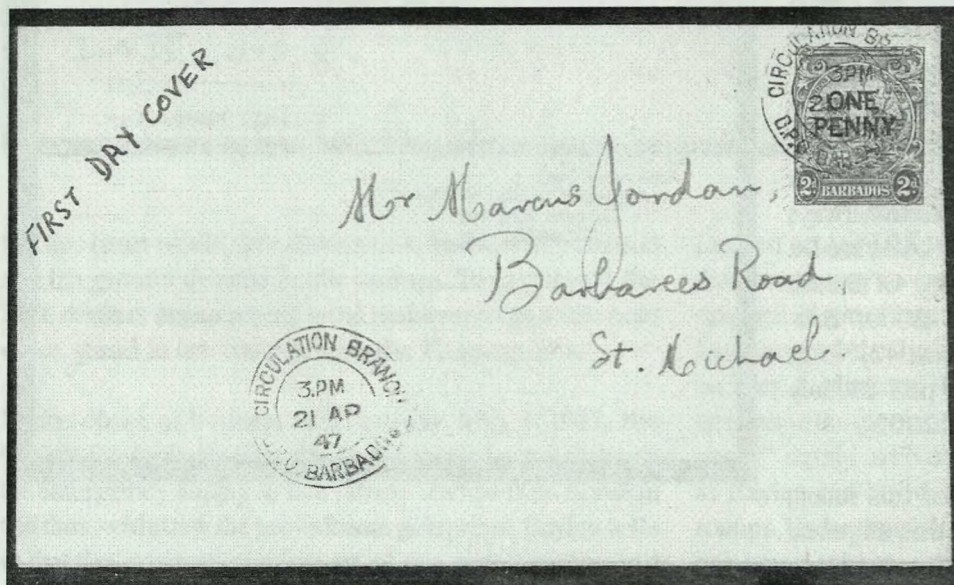 FIRST DAY COVER
CIRCULATION
3PM
ONE
PENNY
2d BARBADOS 2d
Mr Marcus Jordan,
Barbarees Road,
St. Michael
CIRCULATION BRANCH
3.PM
21 AP
47
BARBADOS